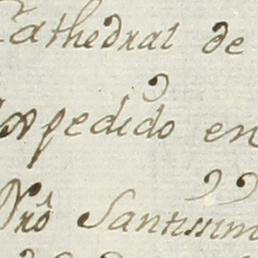 Cathedral de
expedido en
Nrô Santissim